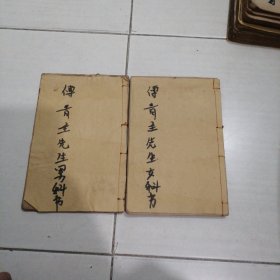 傅青主先生男科书
傅青主先生女科书